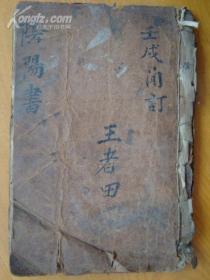 壬戌角訂
王者田
陰陽書
Kongfz.com
孔夫子旧书网